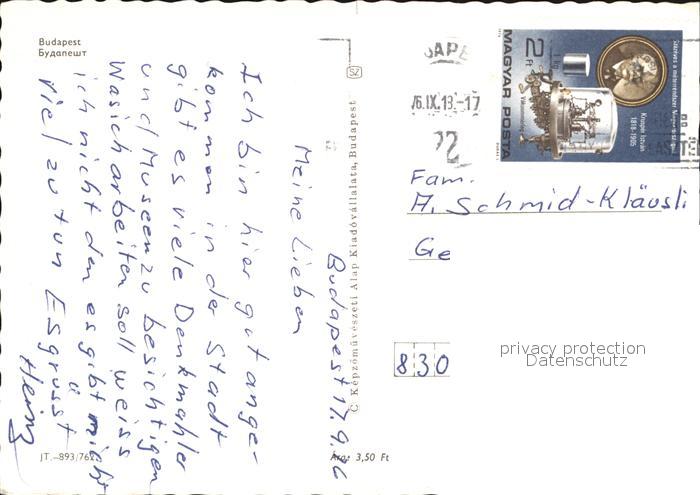 Budapest
Будапешт
Budapest 17.9.76
Meine Lieben
Ich bin hier gut ange-
kommen in der Stadt
gibt es viele Denkmahler
und Museen zu besichtigen
Was ich arbeiten soll weiss
ich nicht den es gibt nicht
viel zu tun Es grüsst
Heinz
SZ
© Képzőművészeti Alap Kiadóvállalata, Budapest
JT.-893/762
Ára: 3,50 Ft
76.IX.18.-17
72
MAGYAR POSTA
2 Ft
1 kg
Kruspér István
1818-1905
Fam.
A. Schmid-Kläusli
Ge
830
privacy protection
Datenschutz